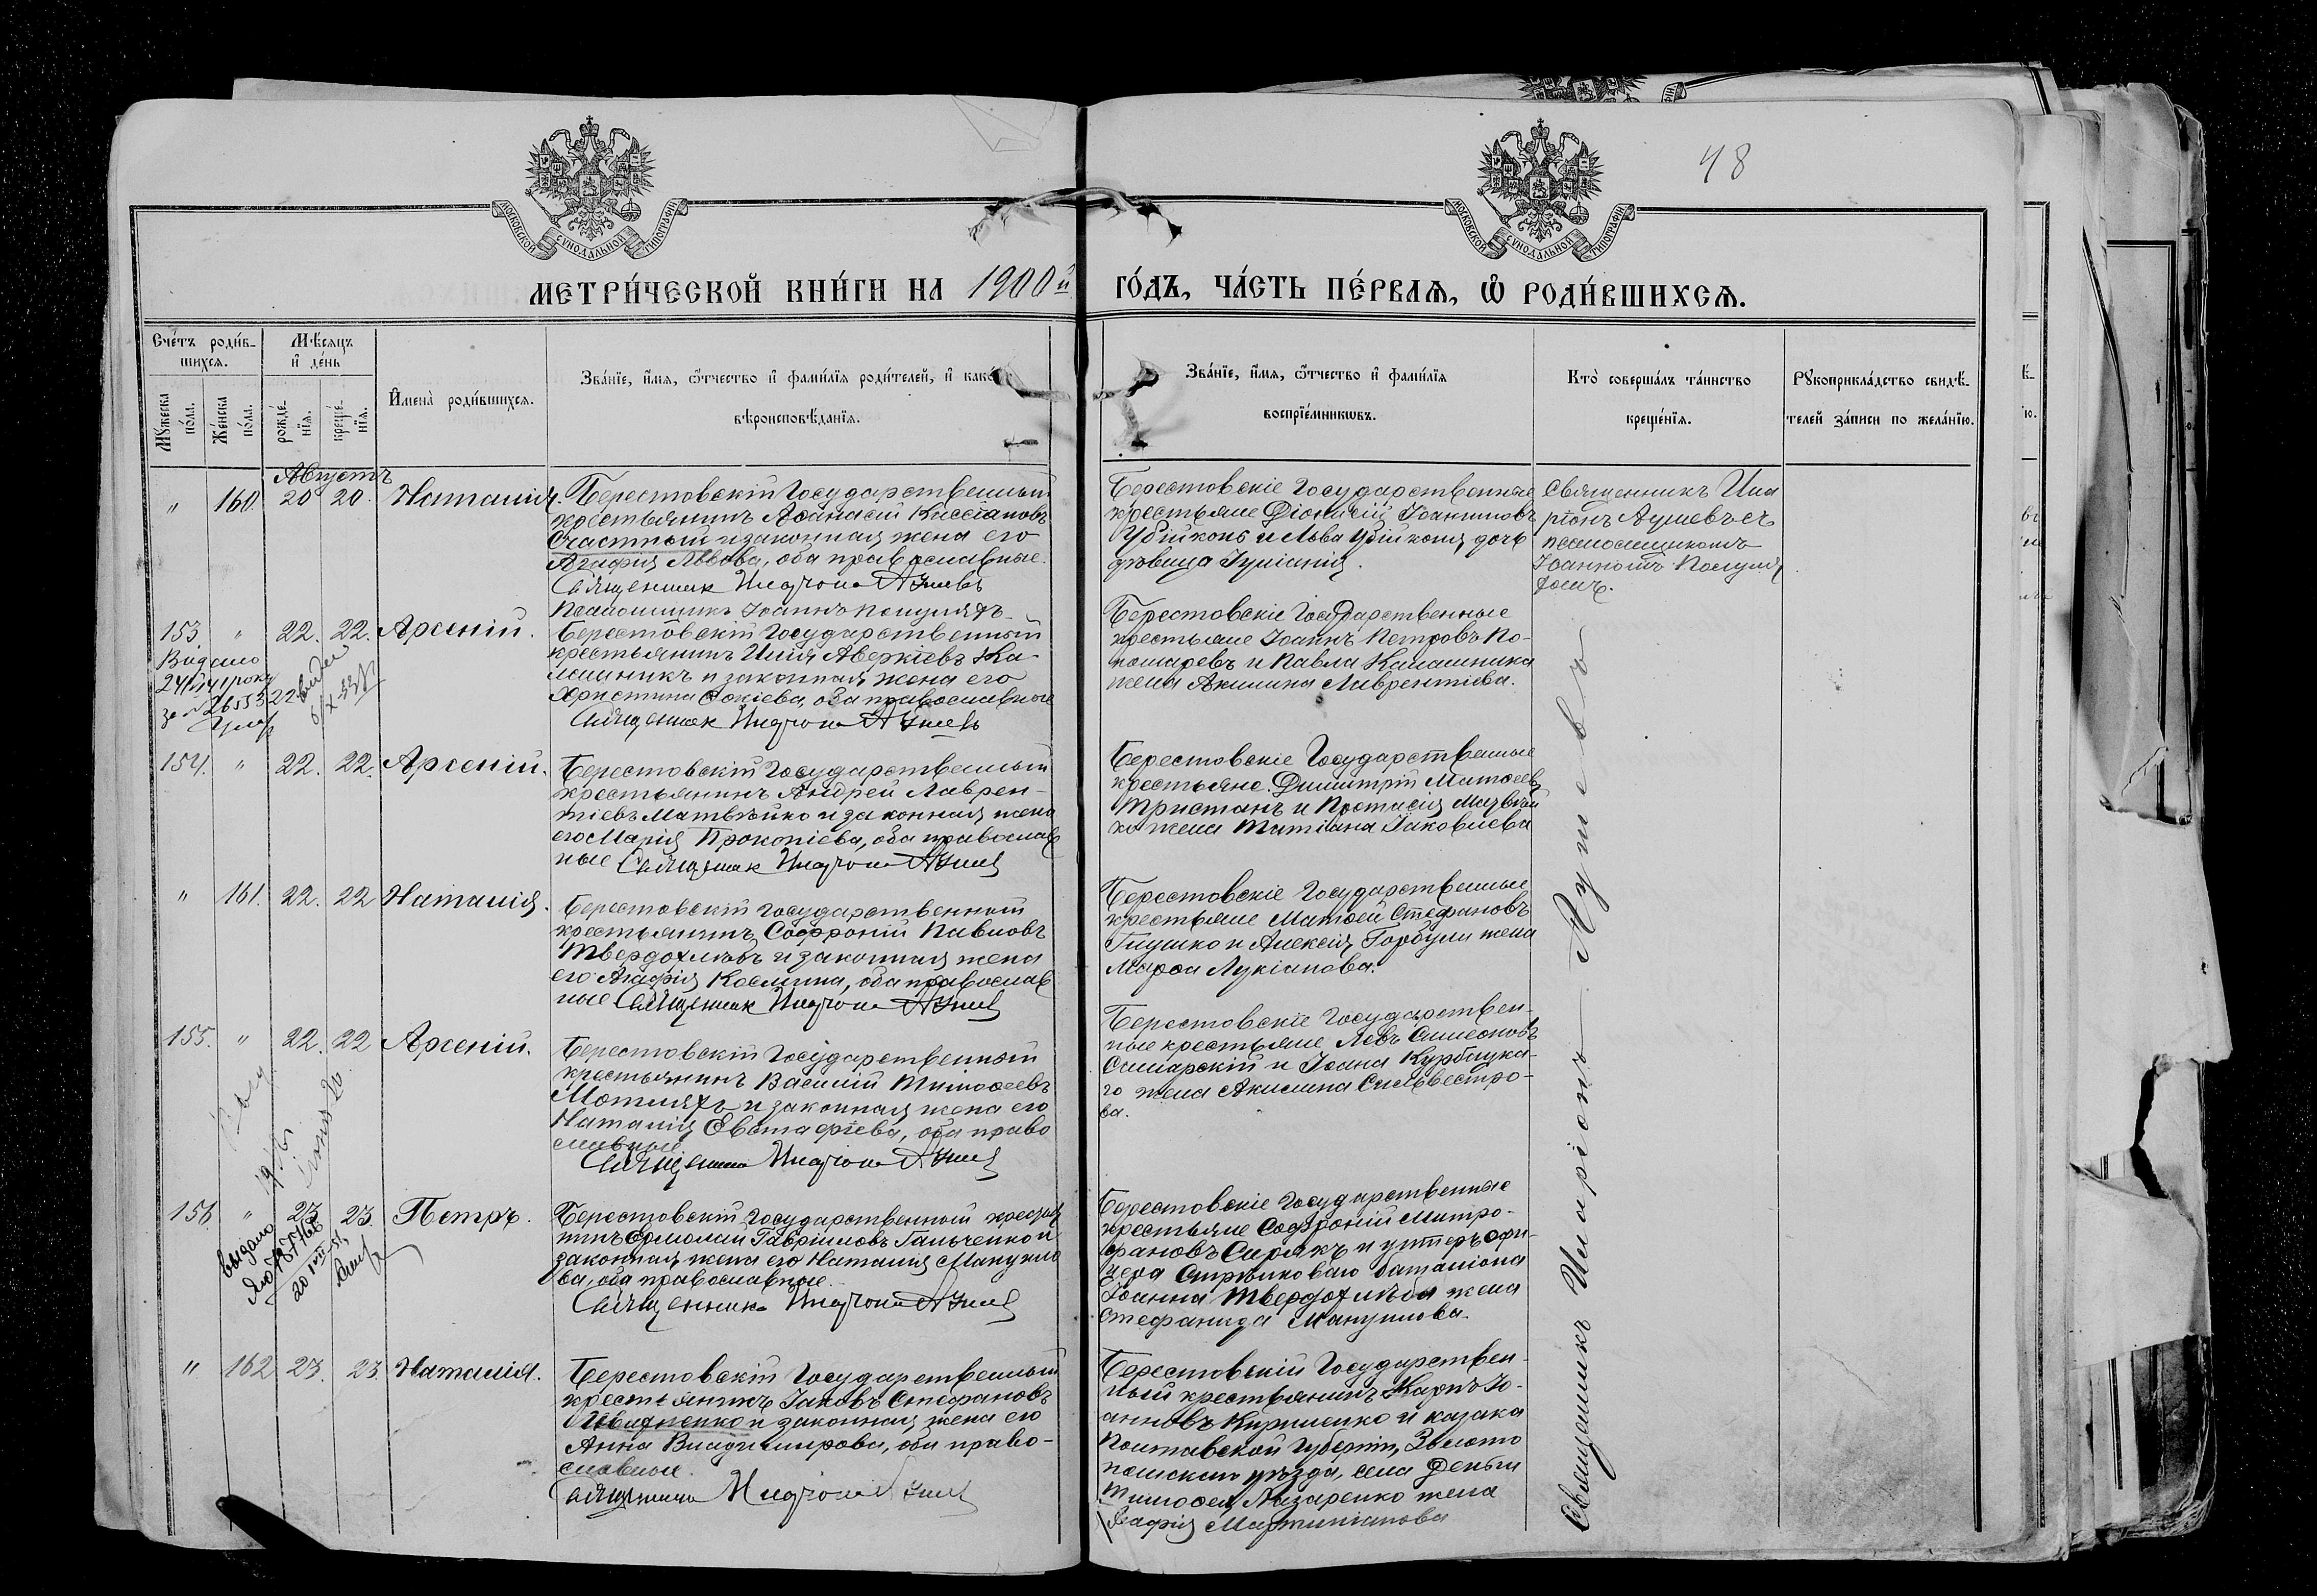 МОСКОВСКОЙ СУНОДАЛЬНОЙ ТИПОГРАФІИ
МОСКОВСКОЙ СУНОДАЛЬНОЙ ТИПОГРАФІИ
48
МЕТРИ́ЧЕСКОЙ КНИ́ГИ НА 1900й ГО́ДЪ, ЧА́СТЬ ПЕ́РВАЯ, Ѽ РОДИ́ВШИХСЯ.
Сче́тъ роди́в-
шихся.
Мѣ́сяцъ
и҆ де́нь
Му́жеска
по́ла.
Же́нска
по́ла.
рожде́-
нїя.
креще́-
нїя.
И҆мена̀ роди́вшихся.
Зва́нїе, и҆́мя, ѻ҆́тчество и҆ фами́лїя роди́телей, и҆ како
вѣроисповѣ́данїя.
Зва́нїе, и҆́мя, ѻ҆́тчество и҆ фами́лїя
воспрїе́мниковъ.
Кто̀ соверша́лъ та́инство
креще́нїя.
Рꙋкоприкла́дство свидѣ́-
телей за́писи по жела́нїю.
Августъ
" 160. 20 20. Наталія.
Берестовскій Государственный
крестьянинъ Аѳанасій Кассіановъ
Счастный и законная жена его
Агафія Львова, оба православные.
Священник Иларіон Ауневъ
Псаломщикъ Іоаннъ
Берестовскіе Государственные
крестьяне Діонисій Іоакимовъ
и Льва дочь
дѣвица Іуліанія.
Священникъ Ила
ріонъ Ауневъ съ
псаломщикомъ
Іоанномъ
153. " 22. 22. Арсеній.
Видано
Берестовскій Государственный
крестьянинъ Илія Аверкіевъ Ка-
лашникъ и законная жена его
Христина Ѳокіева, оба православные
Священник Иларіон Ауневъ
Берестовскіе Государственные
крестьяне Іоаннъ Петровъ По-
номаревъ и Павла Калашника
жена Акилина Лаврентіева.
154. " 22. 22. Арсеній.
Берестовскій Государственный
крестьянинъ Андрей Лаврен-
тіевъ Матвѣйко и законная жена
его Марія Прокопіева, оба православ
ные Священник Иларіон Ауневъ
Берестовскіе Государственные
крестьяне Димитрій Матѳеевъ
Тристанъ и Протасія Матвѣй
ко жена Татіана Іаковлева
" 161. 22. 22 Наталія.
Берестовскій Государственный
крестьянинъ Софроній Павловъ
Твердохлѣбъ и законная жена
его Агафія Космина, оба православ
ные Священник Иларіон Ауневъ
Берестовскіе Государственные
крестьяне Матѳей Стефановъ
Глушко и Алексія Горбули жена
Марѳа Лукіанова.
155. " 22. 22 Арсеній.
Берестовскій Государственный
крестьянинъ Василій Тимоѳеевъ
Мотляхъ и законная жена его
Наталія Евстафіева, оба право
славные
Священник Иларіон Ауневъ
Берестовскіе Государствен-
ные крестьяне Левъ Симеоновъ
Самарскій и Іоана Курбацка-
го жена Акилина Сильвестро-
ва.
156 " 23 23. Петръ.
выдано
Берестовскій Государственный крестья
нинъ Ермолай Гавріиловъ Гальченко и
законная жена его Наталія Мануило
ва, оба православные.
Священникъ Иларіон Ауневъ
Берестовскіе Государственные
крестьяне Софроній Митро-
фановъ Сирякъ и унтеръ офи-
цера Стрѣлковаго баталіона
Іоанна Твердохлѣба жена
Стефанида Мануилова.
" 162 23. 23. Наталія.
Берестовскій Государственный
крестьянинъ Іаковъ Стефановъ
Ивахненко и законная жена его
Анна Владимирова, оба право-
славные.
Священник Иларіон Ауневъ
Берестовскій Государствен-
ный крестьянинъ Карпъ Іо-
анновъ Кириленко и казака
Полтавской Губерніи, Золото
ношскаго уѣзда, села Деньги
Тимоѳея Назаренко жена
Агафія Мартиніанова
Священникъ Иларіонъ Ауневъ